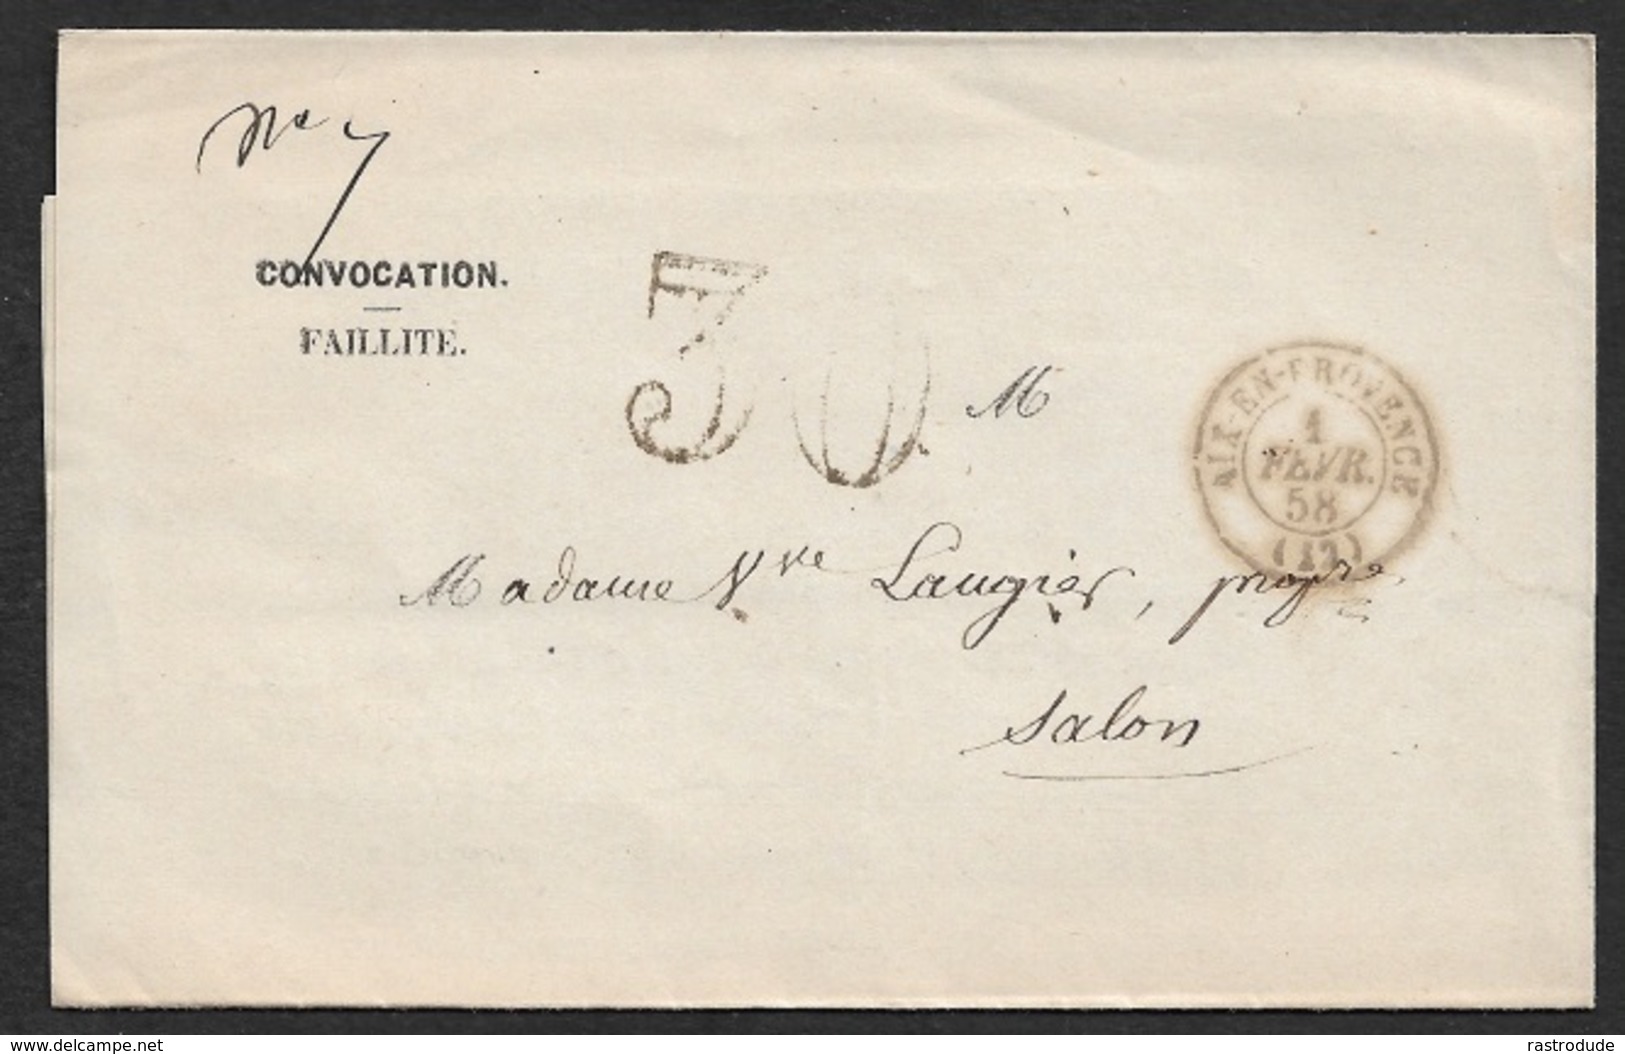 No 7
CONVOCATION.
FAILLITE.
30
M
AIX-EN-PROVENCE
1
FÉVR.
58
(12)
Madame Vve Laugier, propre
Salon
www.delcampe.net
rastrodude